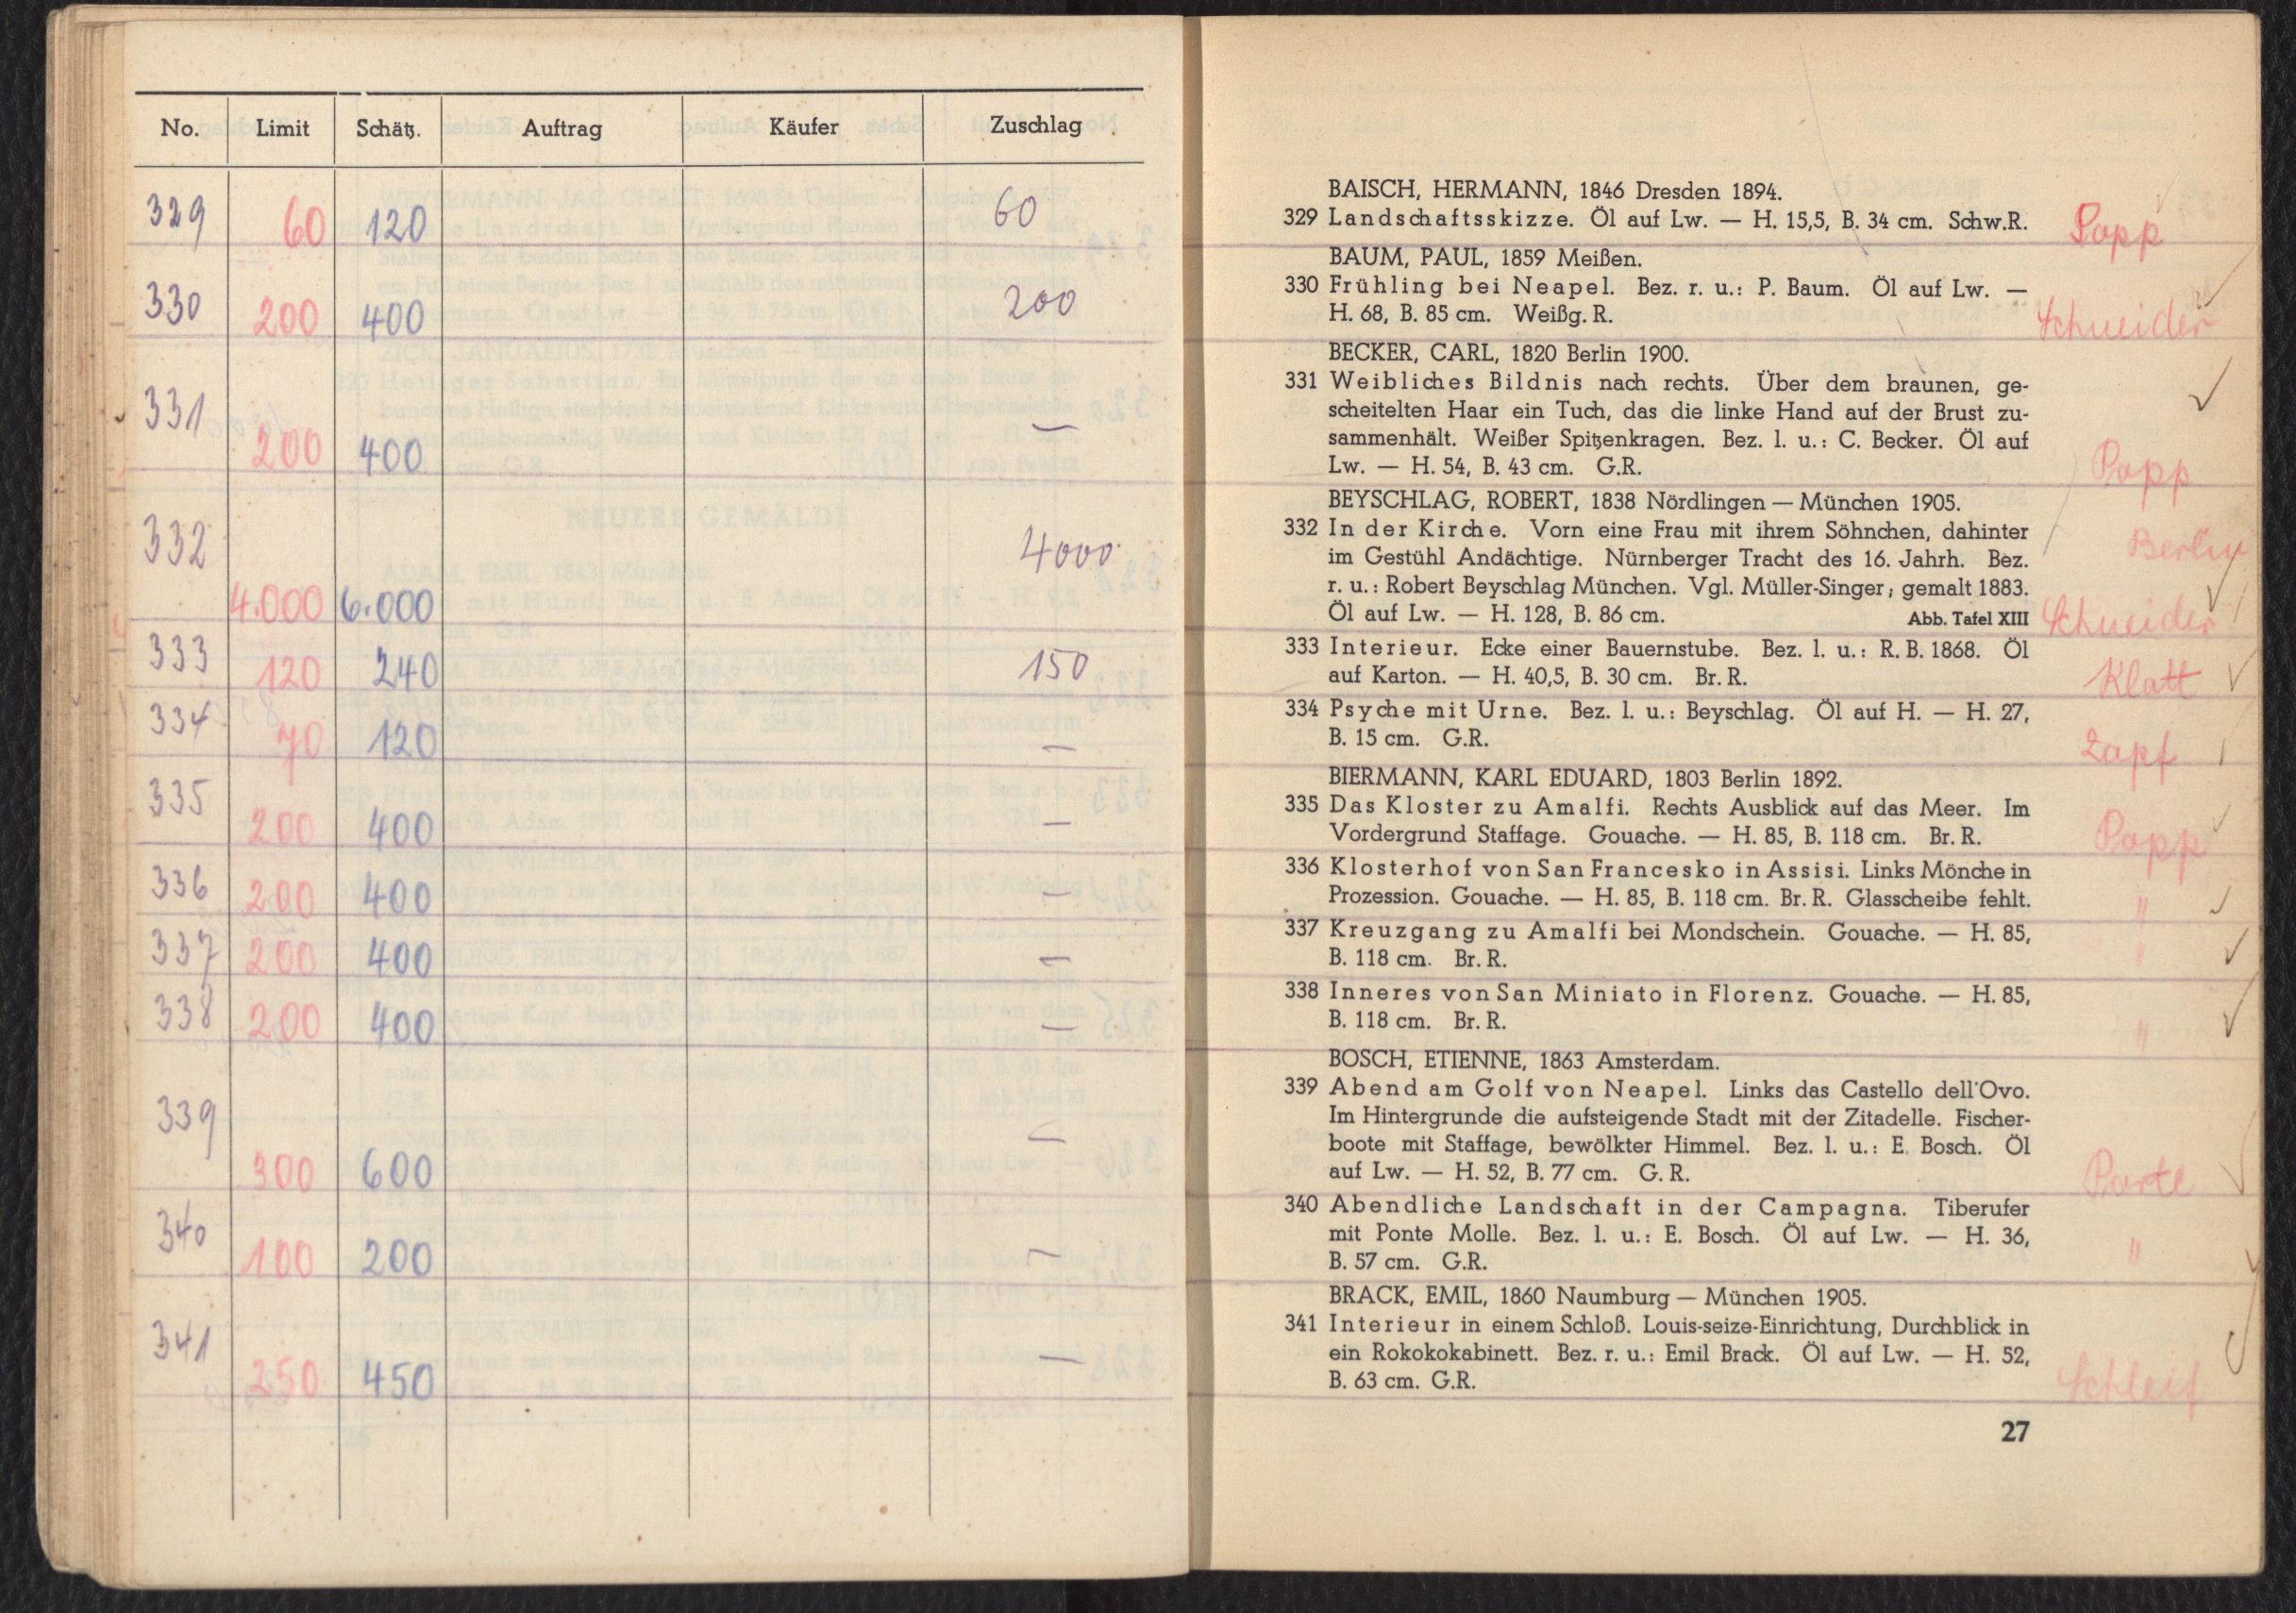 No. Limit Schätz. Auftrag Käufer Zuschlag
329 60 120 60
330 200 400 200
331 200 400 —
332 4.000 6.000 4000
333 120 240 150
334 70 120 —
335 200 400 —
336 200 400 —
337 200 400 —
338 200 400 —
339 300 600 —
340 100 200 —
341 250 450 —
BAISCH, HERMANN, 1846 Dresden 1894.
329 Landschaftsskizze. Öl auf Lw. — H. 15,5, B. 34 cm. Schw.R. Popp
BAUM, PAUL, 1859 Meißen.
330 Frühling bei Neapel. Bez. r. u.: P. Baum. Öl auf Lw. —
H. 68, B. 85 cm. Weißg. R. Schneider
BECKER, CARL, 1820 Berlin 1900.
331 Weibliches Bildnis nach rechts. Über dem braunen, ge-
scheitelten Haar ein Tuch, das die linke Hand auf der Brust zu-
sammenhält. Weißer Spitzenkragen. Bez. l. u.: C. Becker. Öl auf
Lw. — H. 54, B. 43 cm. G.R. Popp
BEYSCHLAG, ROBERT, 1838 Nördlingen — München 1905.
332 In der Kirche. Vorn eine Frau mit ihrem Söhnchen, dahinter
im Gestühl Andächtige. Nürnberger Tracht des 16. Jahrh. Bez. Berlin
r. u.: Robert Beyschlag München. Vgl. Müller-Singer; gemalt 1883.
Öl auf Lw. — H. 128, B. 86 cm. Abb. Tafel XIII Schneider
333 Interieur. Ecke einer Bauernstube. Bez. l. u.: R. B. 1868. Öl
auf Karton. — H. 40,5, B. 30 cm. Br. R. Klatt
334 Psyche mit Urne. Bez. l. u.: Beyschlag. Öl auf H. — H. 27,
B. 15 cm. G.R. Zapf
BIERMANN, KARL EDUARD, 1803 Berlin 1892.
335 Das Kloster zu Amalfi. Rechts Ausblick auf das Meer. Im
Vordergrund Staffage. Gouache. — H. 85, B. 118 cm. Br. R. Popp
336 Klosterhof von San Francesko in Assisi. Links Mönche in
Prozession. Gouache. — H. 85, B. 118 cm. Br. R. Glasscheibe fehlt. "
337 Kreuzgang zu Amalfi bei Mondschein. Gouache. — H. 85,
B. 118 cm. Br. R. "
338 Inneres von San Miniato in Florenz. Gouache. — H. 85,
B. 118 cm. Br. R. "
BOSCH, ETIENNE, 1863 Amsterdam.
339 Abend am Golf von Neapel. Links das Castello dell'Ovo.
Im Hintergrunde die aufsteigende Stadt mit der Zitadelle. Fischer-
boote mit Staffage, bewölkter Himmel. Bez. l. u.: E. Bosch. Öl
auf Lw. — H. 52, B. 77 cm. G. R.
340 Abendliche Landschaft in der Campagna. Tiberufer
mit Ponte Molle. Bez. l. u.: E. Bosch. Öl auf Lw. — H. 36,
B. 57 cm. G.R. "
BRACK, EMIL, 1860 Naumburg — München 1905.
341 Interieur in einem Schloß. Louis-seize-Einrichtung, Durchblick in
ein Rokokokabinett. Bez. r. u.: Emil Brack. Öl auf Lw. — H. 52,
B. 63 cm. G.R. Schleif
27